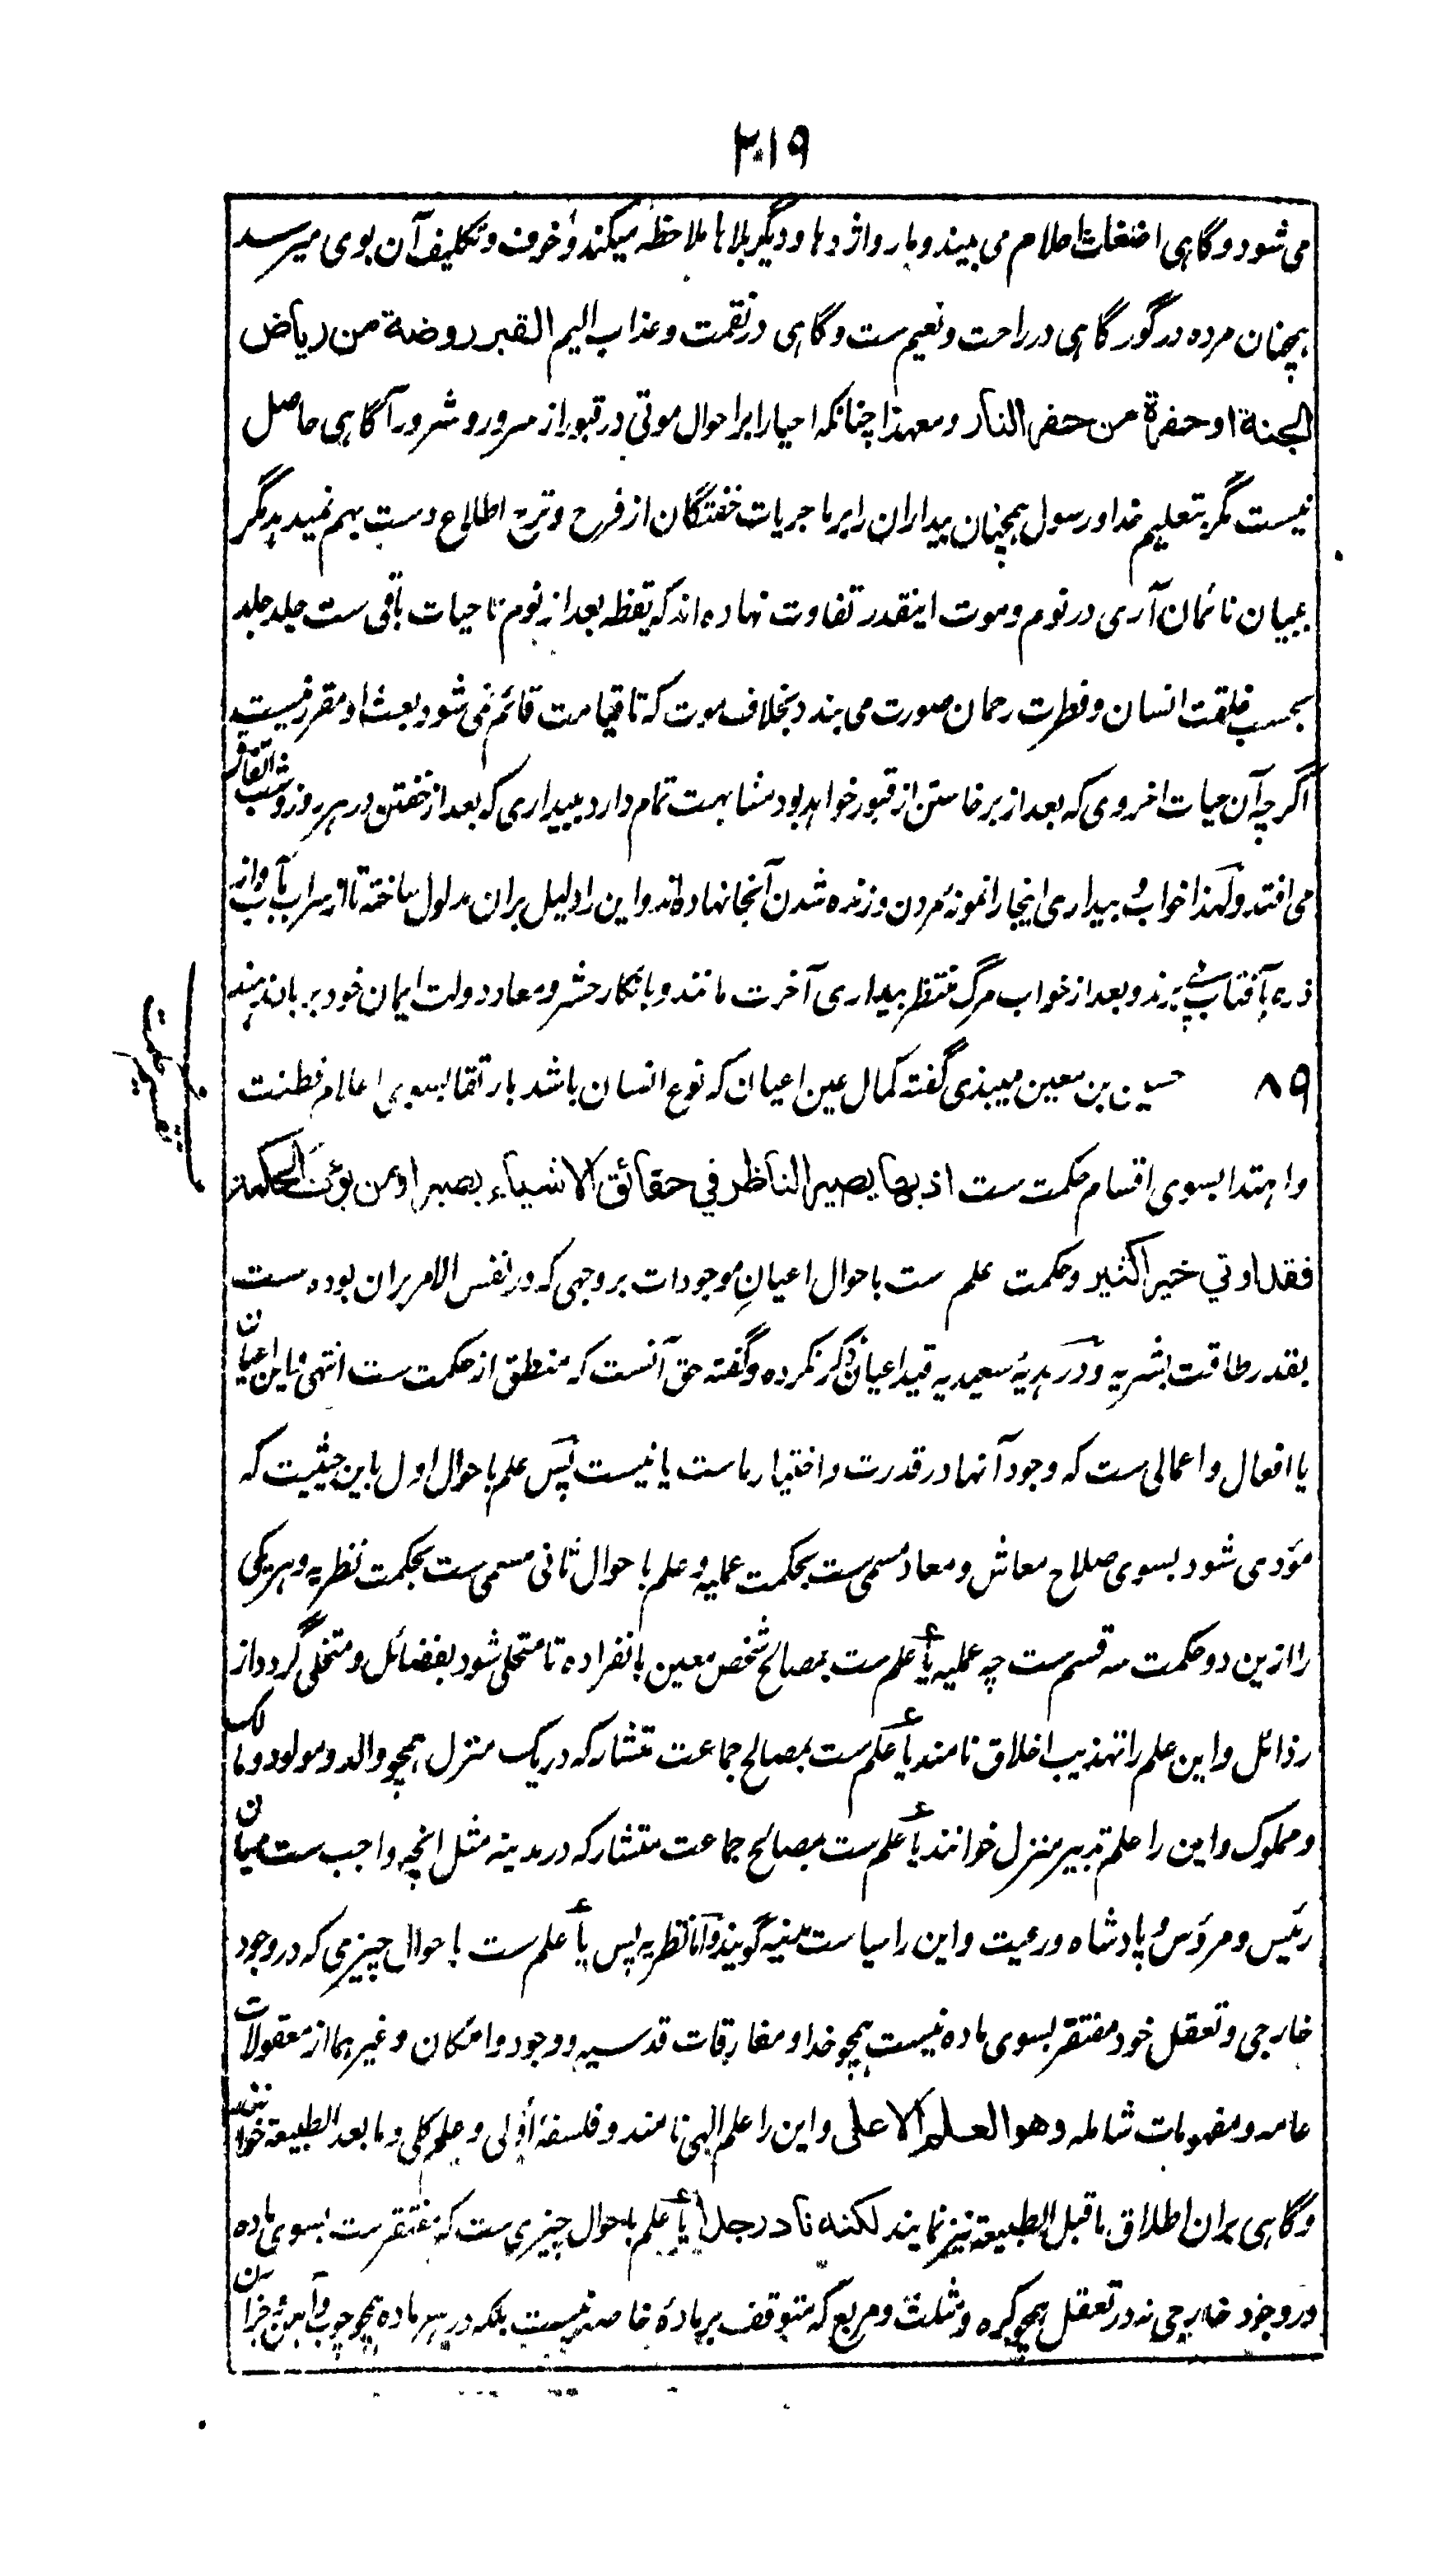 ۲۰۱۹
می شود و گاہی اضغاث احلام می بیند و مار و اژدہا و دیگر بلاہا ملاحظہ میکند و خوف و تکلیف آن بوی میرسد
ہمچنان مردہ در گور گاہی در راحت و نعیم ست و گاہی در نقمت و عذاب الیم القبر روضة من ریاض
الجنة او حفرة من حفر النار و معہذا چنانکہ احیا را بر احوال موتی در قبور از سرور و شرور آگاہی حاصل
نیست مگر بتعلیم خدا و رسول ہمچنان بیداران را بر ماجریات خفتگان از فرح و ترح اطلاع دست بہم نمیدہد مگر
ببیان نائمان آری در نوم و موت اینقدر تفاوت نہادہ اند کہ یقظہ بعد از نوم تا حیات باقی ست جلد جلد
بحسب خلقت انسان و فطرت رحمان صورت می بندد بخلاف موت کہ تا قیامت قائم نمی شود بعث او مقرر نیست
اگرچہ آن حیات اخروی کہ بعد از برخاستن از قبور خواہد بود مشابہت تمام دارد ببیداری کہ بعد از خفتن در ہر روز و شب اتفاق
می افتد و لہذا خواب و بیداری اینجا را نمونۂ مردن و زندہ شدن آنجا نہادہ اند و این را دلیل بران مدلول ساختہ تا از سراب بآب و از
ذرہ بآفتاب پی برند و بعد از خواب مرگ منتظر بیداری آخرت مانند و بانکار حشر و معاد دولت ایمان خود بر باد ندہند
۸۹ حسین بن معین میبذی گفتہ کمال عین اعیان کہ نوع انسان باشد بارتقا بسوی اعلام فطنت
تقسیم حکمت
و اہتدا بسوی اقسام حکمت ست اذ بها یصیر الناظر في حقائق الاشیاء بصیرا ومن یؤت الحکمة
فقد اوتي خیرا کثیرا و حکمت علم ست باحوال اعیانِ موجودات بر وجہی کہ در نفس الامر بران بودہ ست
بقدر طاقت بشریہ و در ہدیۂ سعیدیہ قید اعیان ذکر نکردہ و گفتہ حق آنست کہ منطق از حکمت ست انتہی و این اعیان
یا افعال و اعمالی ست کہ وجود آنہا در قدرت و اختیار ماست یا نیست پس علم باحوال اول باین حیثیت کہ
مؤدی شود بسوی صلاح معاش و معاد مسمی ست بحکمت عملیہ و علم باحوال ثانی مسمی ست بحکمت نظریہ و ہر یکی
را ازین دو حکمت سہ قسم ست چہ عملیہ یا علم ست بمصالح شخص معین بانفرادہ تا متحلی شود بفضائل و متخلی گردد از
رذائل و این علم را تہذیب اخلاق نامند یا علم ست بمصالح جماعت متشارکہ در یک منزل ہمچو والد و مولود و مالک
و مملوک و این را علم تدبیر منزل خوانند یا علم ست بمصالح جماعت متشارکہ در مدینہ مثل انچہ واجب ست میان
رئیس و مرؤس و پادشاہ و رعیت و این را سیاست مدنیہ گویند و اما نظریہ پس یا علم ست باحوال چیزی کہ در وجود
خارجی و تعقل خود مفتقر بسوی مادہ نیست ہمچو خدا و مفارقات قدسیہ و وجود و امکان و غیرہما از معقولات
عامہ و مفہومات شاملہ و هو العلم الاعلی و این را علم الہی نامند و فلسفۂ اولی و علم کلی و ما بعد الطبیعۃ خوانند
و گاہی بران اطلاق ما قبل الطبیعۃ نیز نمایند لکنه نادر جدا یا علم باحوال چیزی ست کہ مفتقر ست بسوی مادہ
در وجود خارجی نہ در تعقل ہمچو کرہ و مثلث و مربع کہ متوقف بر مادۂ خاصہ نیست بلکہ در ہر مادہ ہمچو چوب و آہن